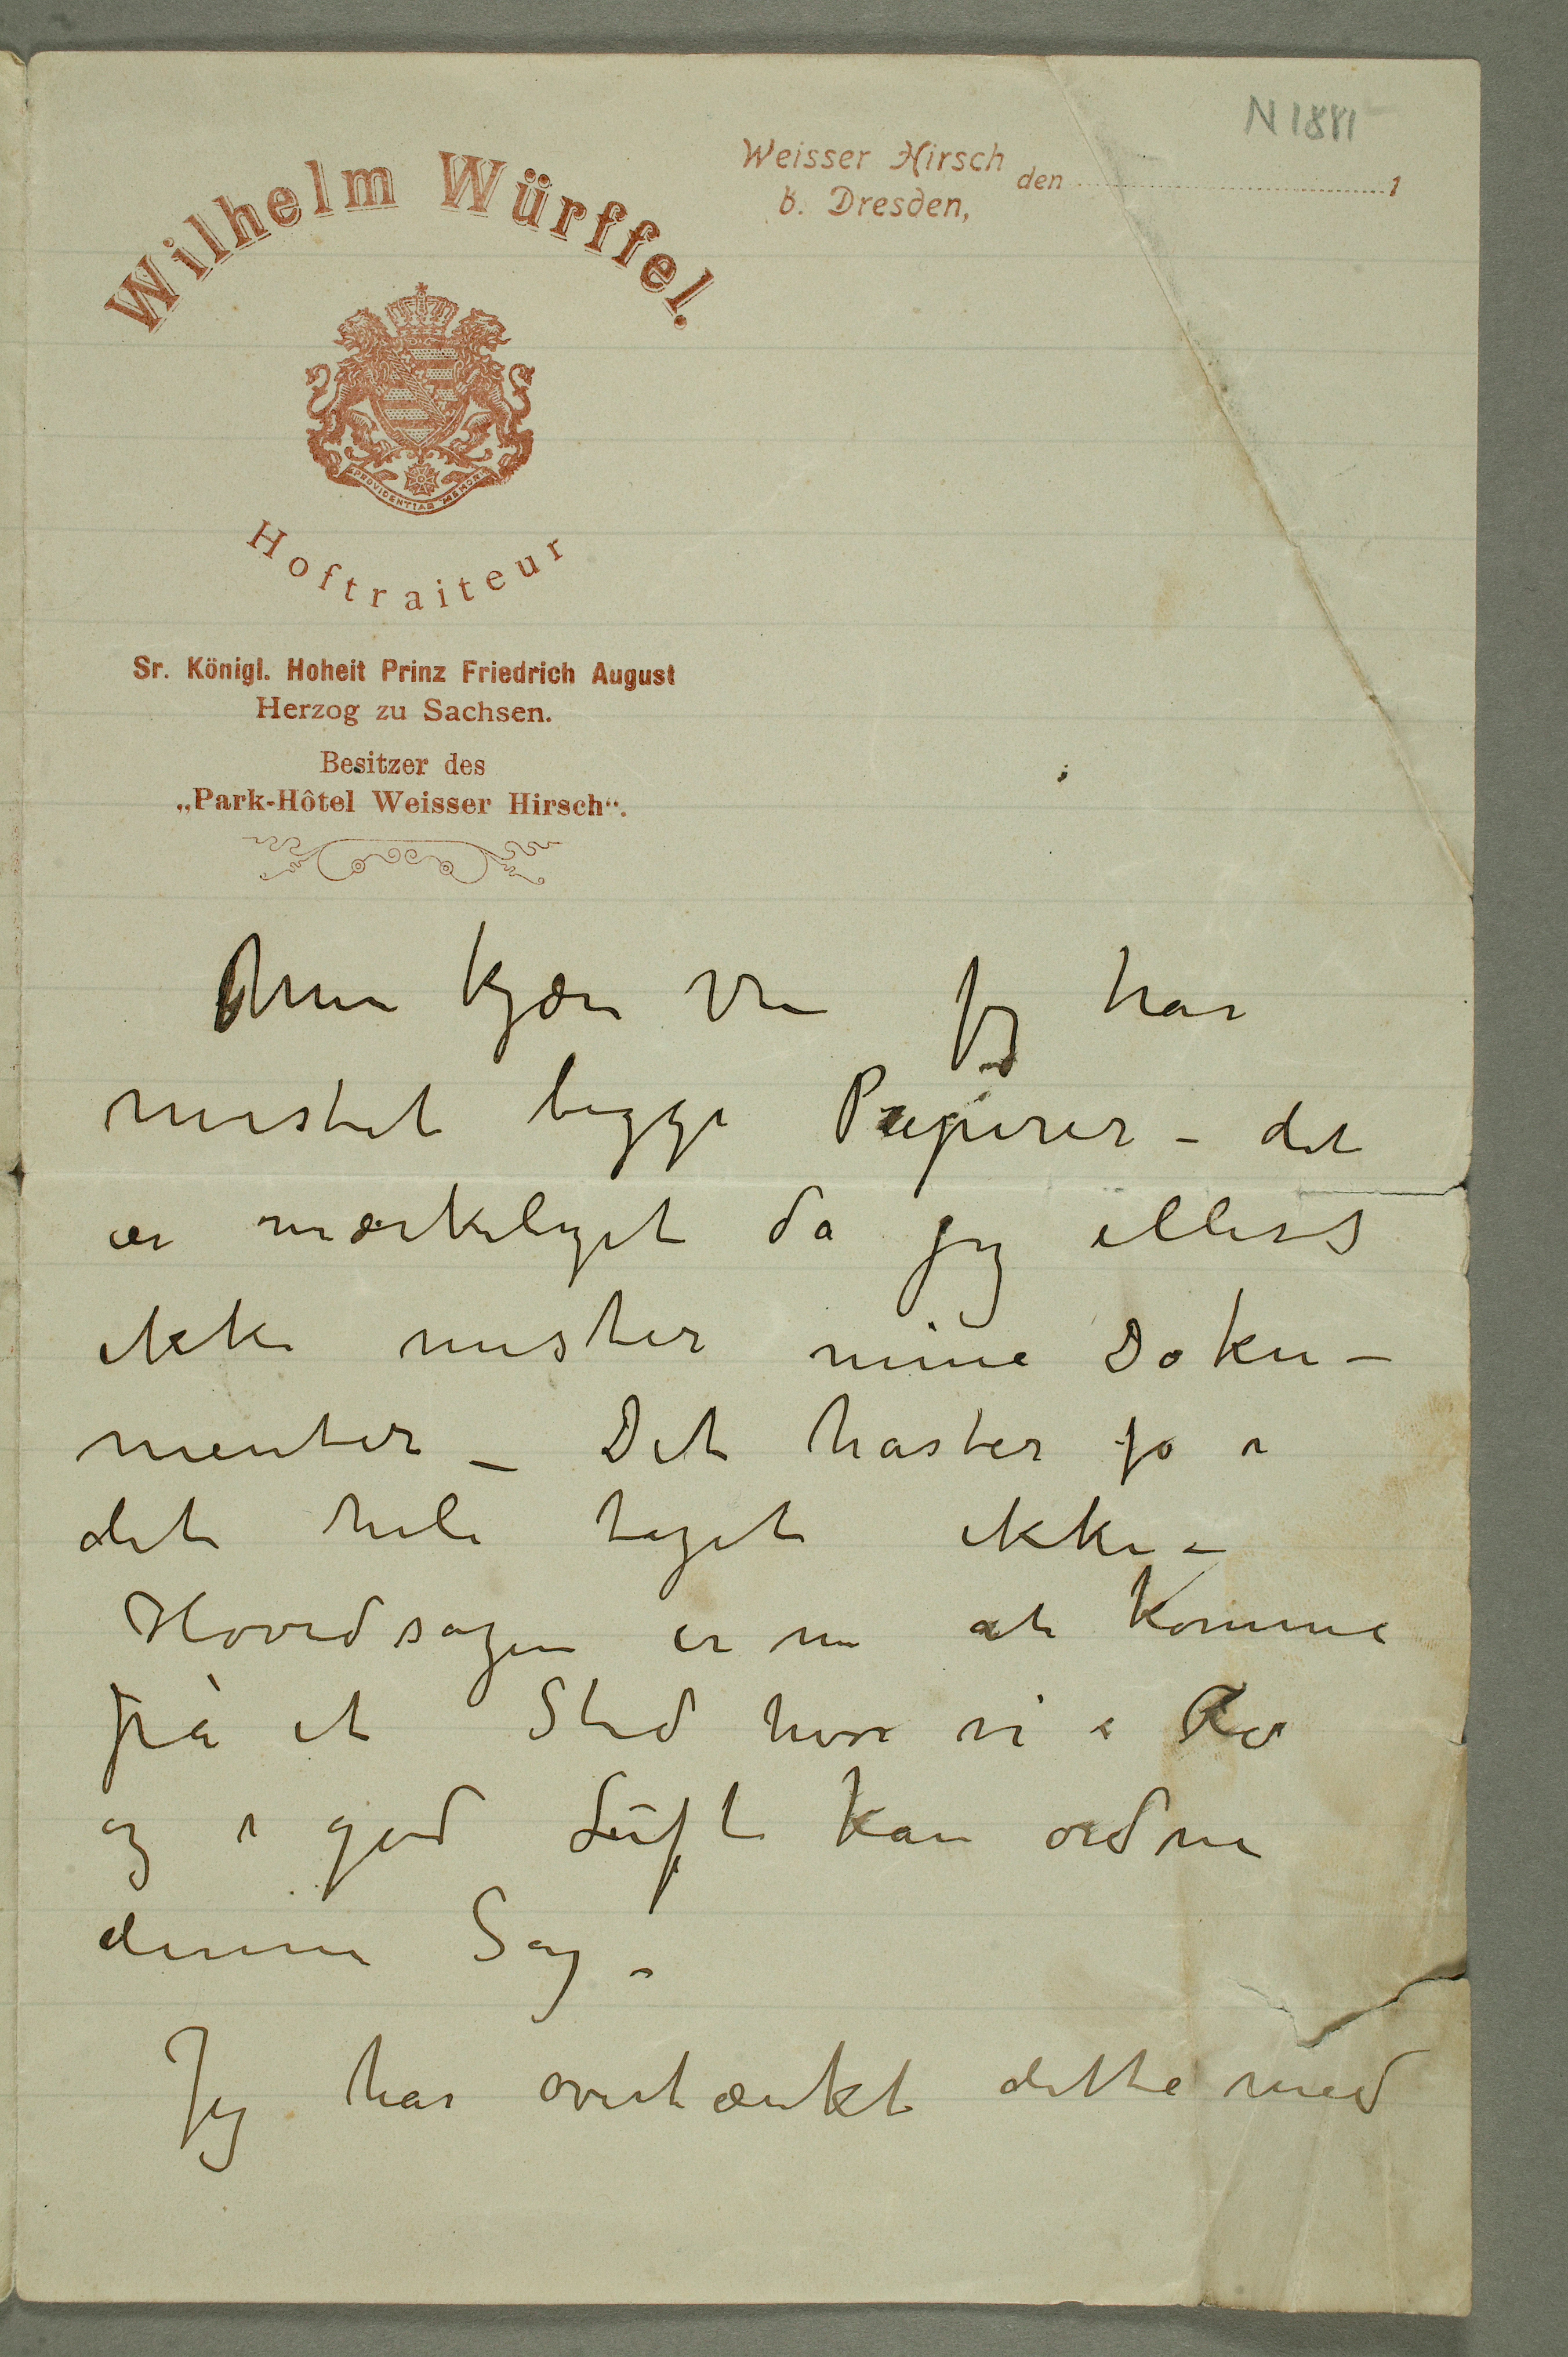 N 1881
Weisser Hirsch
b. Dresden, den 1
Wilhelm Würffel.
PROVIDENTIAE MEMOR
Hoftraiteur
Sr. Königl. Hoheit Prinz Friedrich August
Herzog zu Sachsen.
Besitzer des
„Park-Hôtel Weisser Hirsch“.
Min kjære Ven Jeg har
mistet begge Papirer – det
er mærkeligt da jeg ellers
ikke mister mine Doku–
menter – Det haster jo i
det hele taget ikke –
Hovedsagen er nu at komme
på et Sted hvor vi i Ro
og i god Luft kan ordne
denne Sag –
Jeg har overtænkt dette med